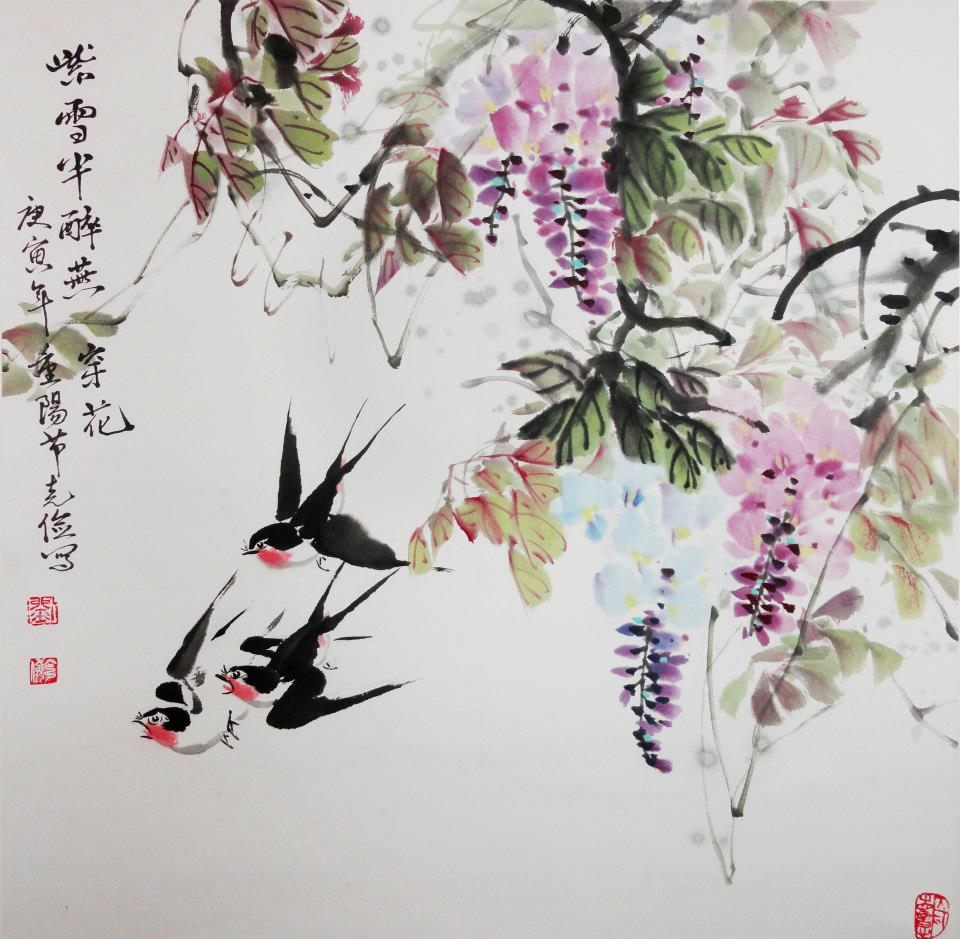 紫雪半醉燕穿花
庚寅年重陽节志俭写